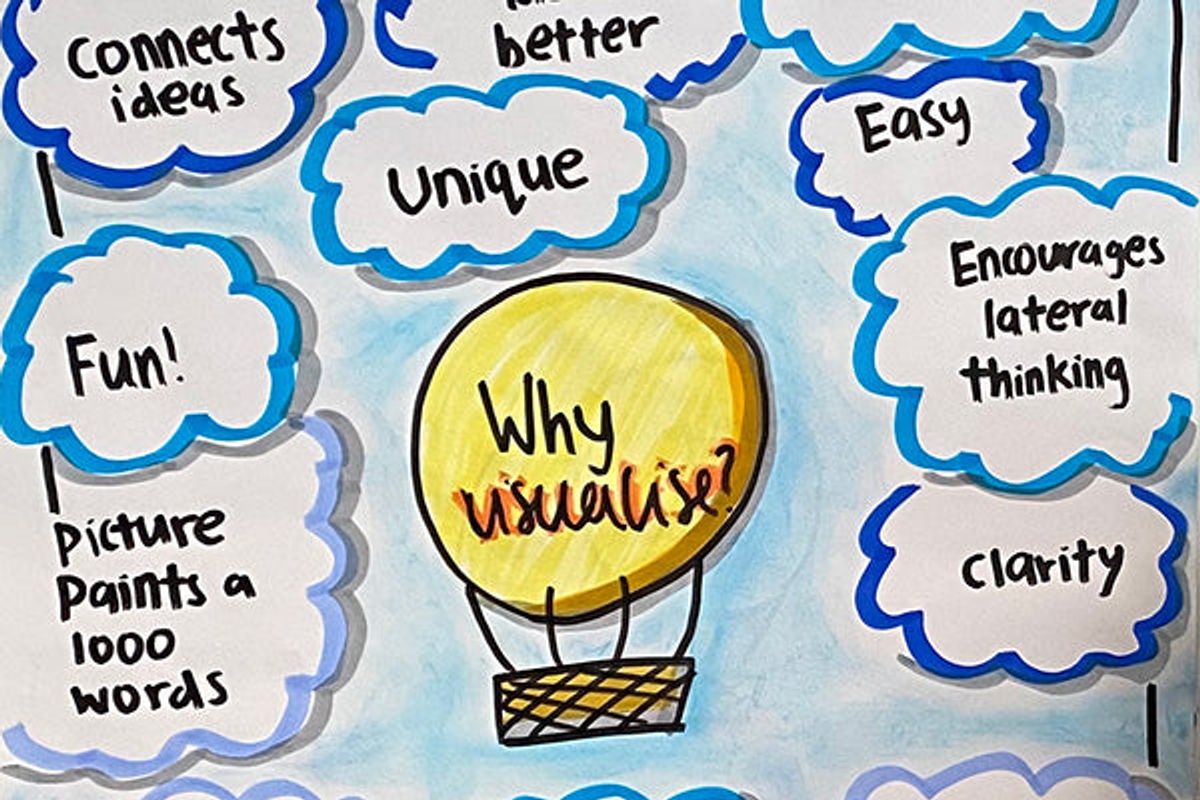 Connects
ideas
better
Unique
Easy
Encourages
lateral
thinking
Fun!
Why
visualise?
Picture
Paints a
1000
words
Clarity